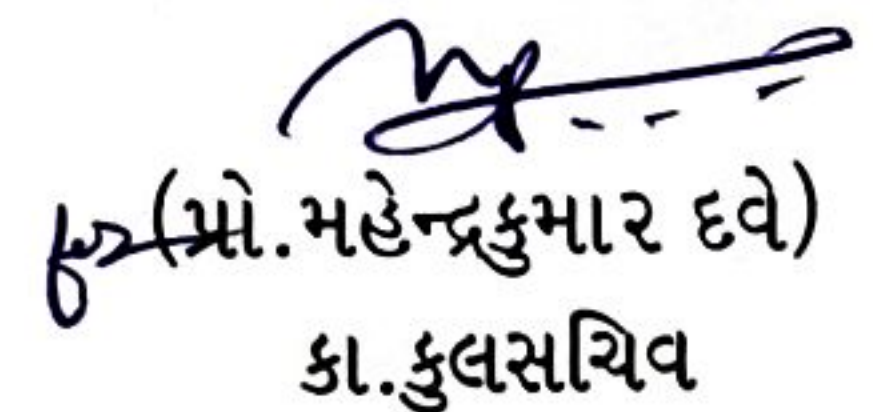 for (પ્રો.મહેન્દ્રકુમાર દવે)
કા.કુલસચિવ